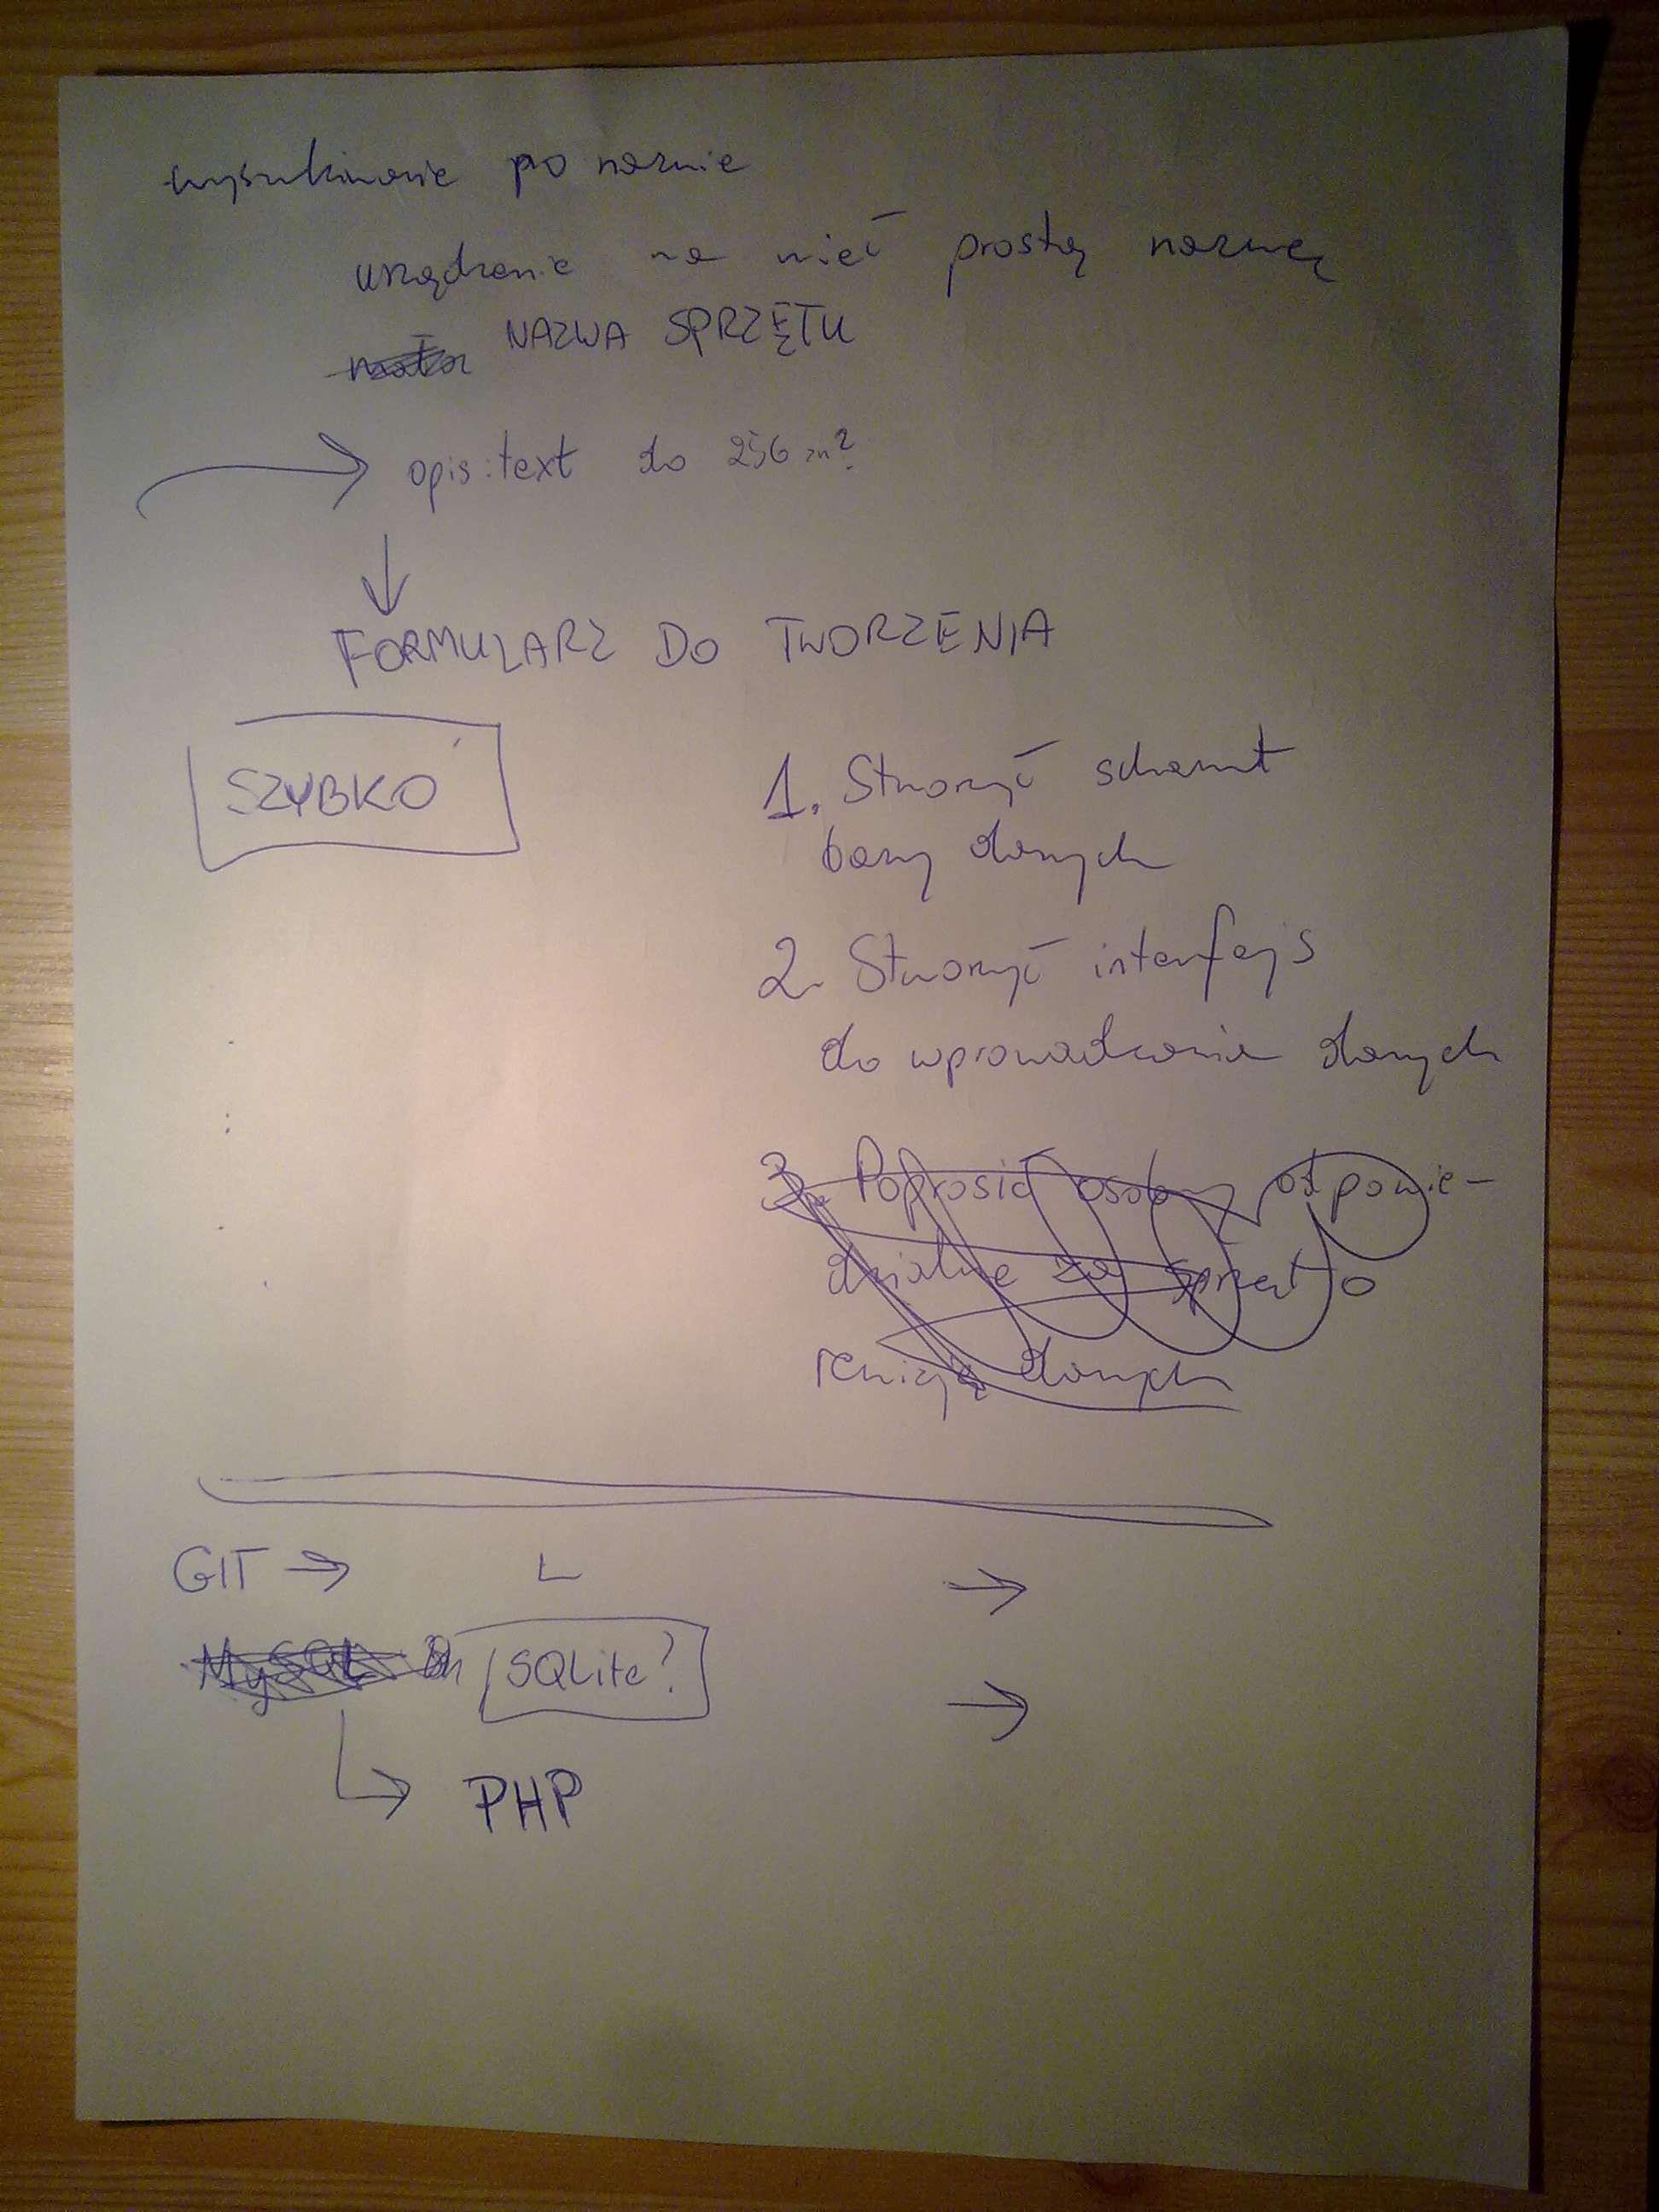 wyszukiwanie po nazwie
urządzenie ma mieć prostą nazwę
NAZWA SPRZĘTU
opis: text do 256 zn?
FORMULARZ DO TWORZENIA
SZYBKO
1. Stworzyć schemat
bazy danych
2. Stworzyć interfejs
do wprowadzania danych
3. Poprosić osoby odpowie-
dzialne za sprzęt o
rewizję danych
GIT → L →
MySQL SQLite? →
PHP